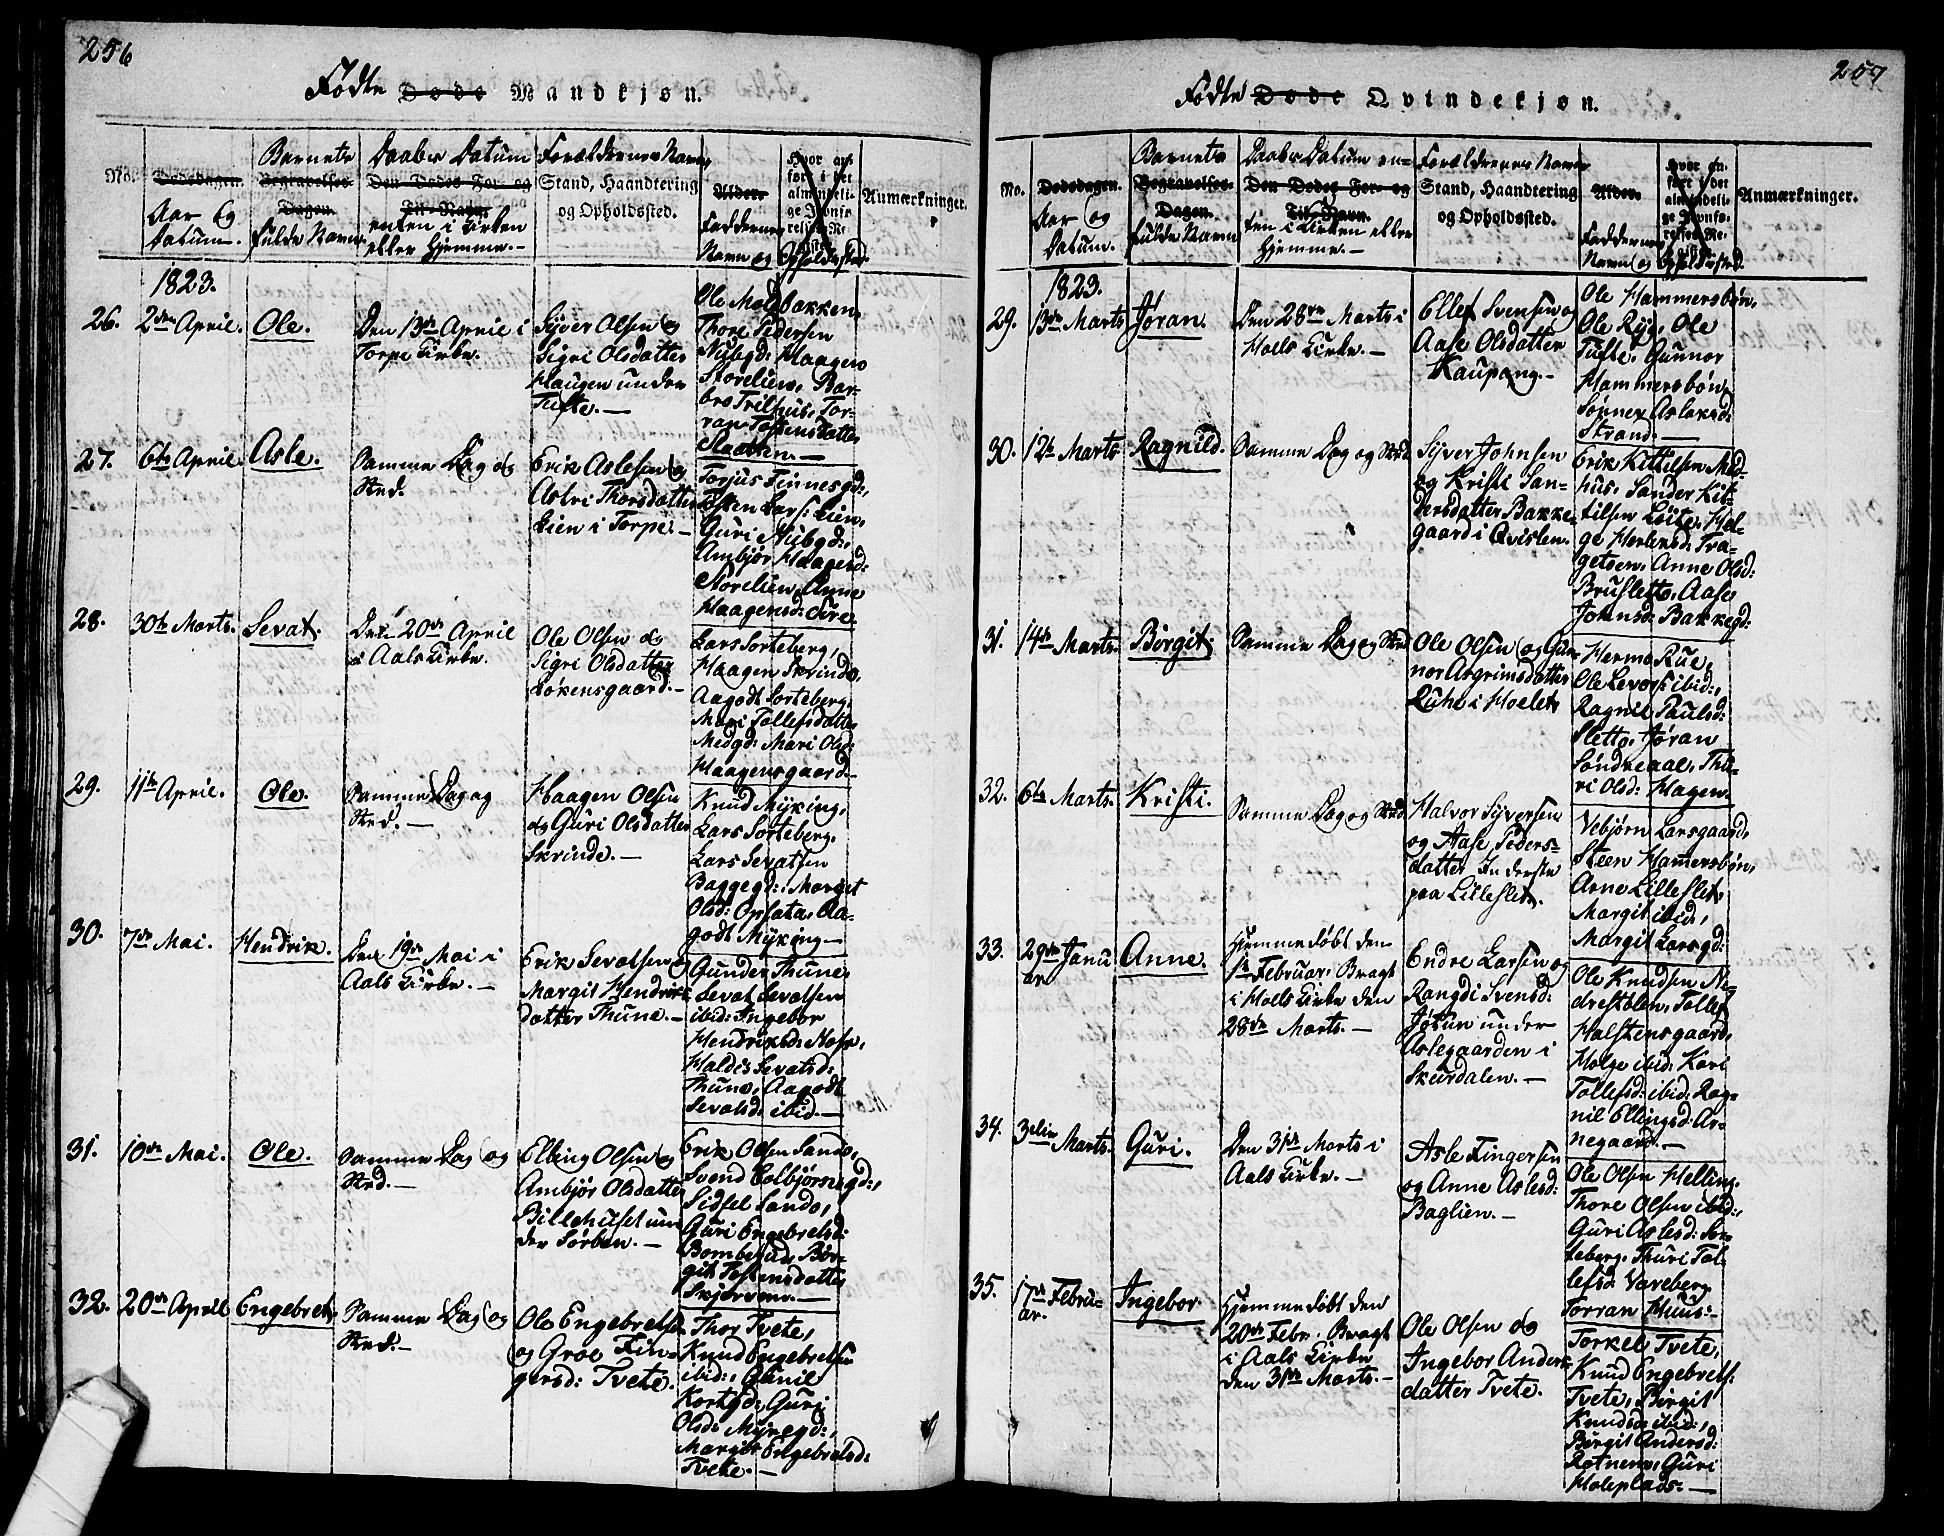 256
Fødte Døde Mandkjøn.
No.
Dødsdagen.
Aar og
Datum.
Barnets
Begravelses-
Dagen.
fulde Navn
Daabs Datum
Den Dødes For- og
Til-Navn.
enten i Kirken
eller Hjemme.-
Forældrenes Navn
Stand, Haandtering
og Opholdssted.
Alder.
Faddernes
Navn og Opholdssted
Hvor an-
ført i det
almindeli-
ge Jevnfø-
relses-Re-
gister.
Anmærkninger.
1823.
26.
2den April.
Ole.
Den 13de April i
Torpe Kirke.
Syver Olsen og
Sigri Olsdatter
Haugen under
Tufte.-
Ole Moldbakken,
Thore Pedersen
Nubgd: Haagen
Storelien, Bar-
bro Trilhus, Tor-
ran Tostensdatter
Slaatten.-
27.
6te April.
Asle.
Samme Dag og
Sted.
Erik Aslesen og
Astri Thorsdatter
Lien i Torpe.-
Torjus Finnesgd:,
Tosten Lars: Lien,
Guri Nubgd:,
Ambjør Haagensd:
Storelien, Anne
Haagensd: Eire.
28.
30te Marts.
Sevat.
Den 20de April
i Aals Kirke.
Ole Olsen og
Sigri Olsdatter
Løkensgaard.-
Lars Sorteberg,
Haagen Skrindo,
Aagodt Sorteberg,
Mari Tollefsdatter
Medgd: Mari Olsd:
Haagensgaard.-
29.
11te April.
Ole.
Samme Dag og
Sted.-
Haagen Olsen
og Guri Olsdatter
Skrinde.-
Knud Myking,
Lars Sorteberg,
Lars Sevatsen
Baggegd: Margit
Olsd: Opsata, Aa-
godt Myking.-
30.
7de Mai.
Hendrik.
Den 19de Mai i
Aals Kirke.-
Erik Sevatsen og
Margit Hendriks
datter Thune.-
Gunder Thune,
Sevat Sevatsen
ibid: Ingebor
Hendriksd: Noss,
Haldis Sevatsd:
Thune, Aagodt
Sevatsd: ibid.-
31.
10de Mai.
Ole.
Samme Dag og
Sted.-
Elling Olsen og
Ambjør Olsdatter
Billehuset un
der Sørben.-
Erik Olsen Sando,
Svend Colbjørnsgd:,
Sidsel Sando,
Guri Engebretsd:
Bomberud, Bør-
git Tostensdatter
Skjerven.-
32.
20de April
Engebret.
Samme Dag og
Sted.-
Ole Engebretsen
og Groe Fin-
gersd: Tvete.
Thor Tvete,
Knud Engebretsen
ibid:, Gunil
Kortgd:, Guri
Olsd: Myregd:,
Margit Engebretsd:
Tvete.-
257
Fødte Døde Qvindekjøn.
No.
Dødsdagen.
Aar og
Datum.
Barnets
Begravelses-
Dagen.
fulde Navn
Daabs Datum en-
Den Dødes For- og
Til-Navn.
ten i Kirken eller
Hjemme.-
Forældrenes Navn
Stand, Haandtering
og Opholdssted.
Alder.
Faddernes
Navn og Opholdssted
Hvor an-
ført i det
almindeli-
ge Jevnfø-
relses-Re-
gister.
Anmærkninger.
1823.
29.
13de Marts
Jøran.
Den 28de Marts i
Hoels Kirke.-
Ellef Svensen og
Aase Olsdatter
Kaupang.-
Ole Hammersbøn,
Ole Rye, Ole
Tufte, Gunnor
Hammersbøn,
Sønnev Aslaksd:
Strand.-
30.
12te Marts
Ragnild.
Samme Dag og Sted
Syver Johnsen
og Kristi San-
dersdatter Bakke-
gaard i Qvislen.
Erik Kittilsen Med-
hus, Sander Kit-
tilsen Løite, Hel-
ge Herlensd: Tra-
getsen, Anne Olsd:
Brusletto, Aase
Johnsd: Bakkegd:
31.
14de Marts.
Børgit.
Samme Dag og Sted
Ole Olsen og Gun-
nor Asgrimsdatter
Ruhe i Hoelet
Hermo Rue,
Ole Levors: ibid:,
Ragnil Paulsd:
Sletto, Jøran
Søndreaal, Thu-
ri Olsd: Hagen.
32.
6te Marts.
Kristi.
Samme Dag og Sted
Halvor Syversen
og Aase Peders-
datter Inderste
paa Lilleslet.
Vebjørn Larsgaard,
Steen Hammersbøn,
Arne Lilleslet,
Margit ibid,
Margit Larsgd:
33.
29de Janu
ar.
Anne.
Hjemmedøbt den
1te Februar. Bragt
i Hoels Kirke den
28de Marts.-
Endre Larsen og
Rangdi Svensd:
Jøtun under
Aslegaarden i
Skurdalen.-
Ole Knudsen Ne-
drestølen, Tollef
Halstensgaard,
Helge ibid: Kari
Tollefsd: ibid: Rag-
nil Ellingsd: Ar-
negaard.-
34.
3die Marts.
Guri.
Den 31te Marts i
Aals Kirke.-
Asle Fingersen
og Anne Aslesd:
Baglien.-
Ole Olsen Helling,
Thore Olsen ibid:,
Guri Aslesd: Sor-
teberg, Thuri Tol-
lefsd: Vareberg
Torran Huus:-
35.
17de Febru-
ar.
Ingebor.
Hjemmedøbt den
20de Febr. Bragt
i Aals Kirke
den 31te Marts.-
Ole Olsen og
Ingebor Anders
datter Tvete.
Torkel Tvete,
Knud Engebrets:
Tvete, Birgit
Knudsd: ibid:,
Birgit Andersd:
Rotnem, Guri
Holeplads.-